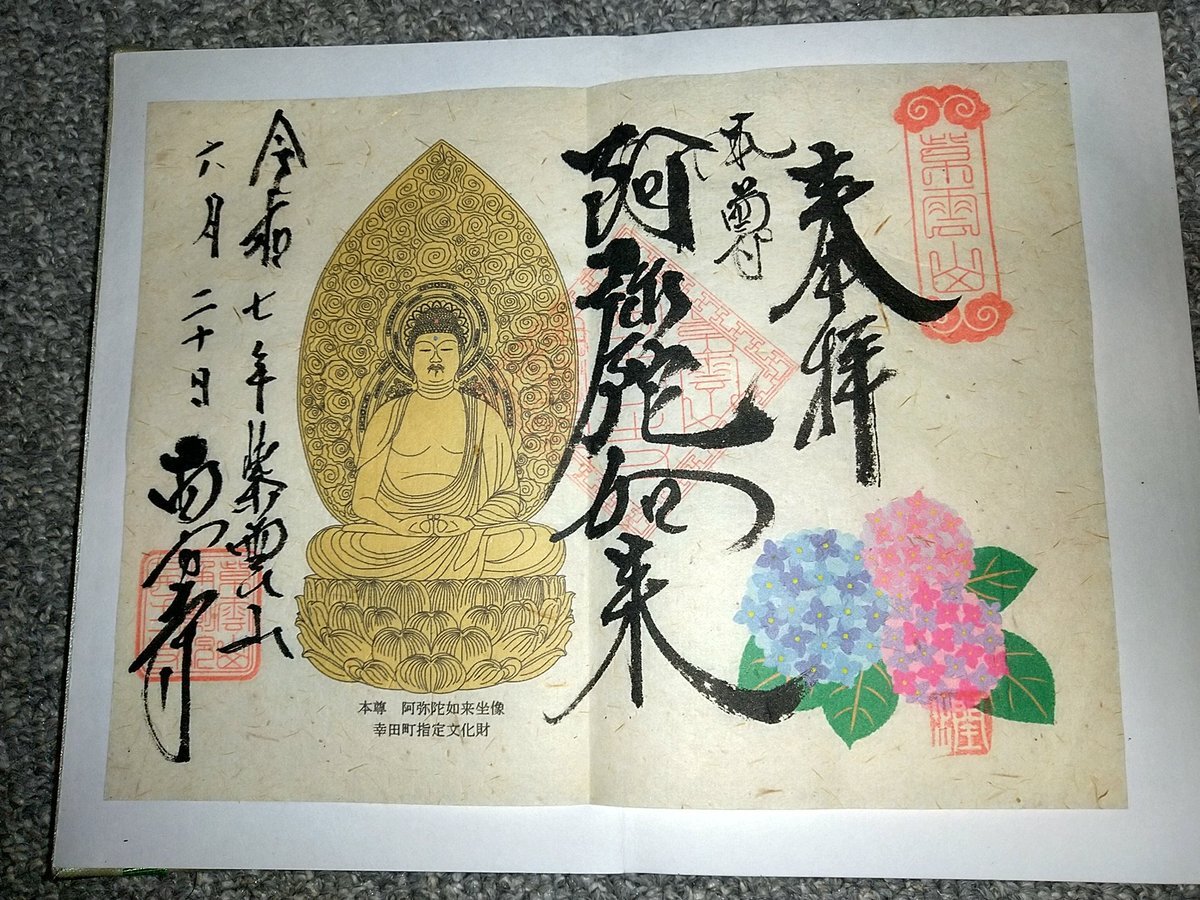 紫雲山
奉拝
本尊
阿弥陀如来
本尊　阿弥陀如来坐像
幸田町指定文化財
令和七年
六月二十日
紫雲山